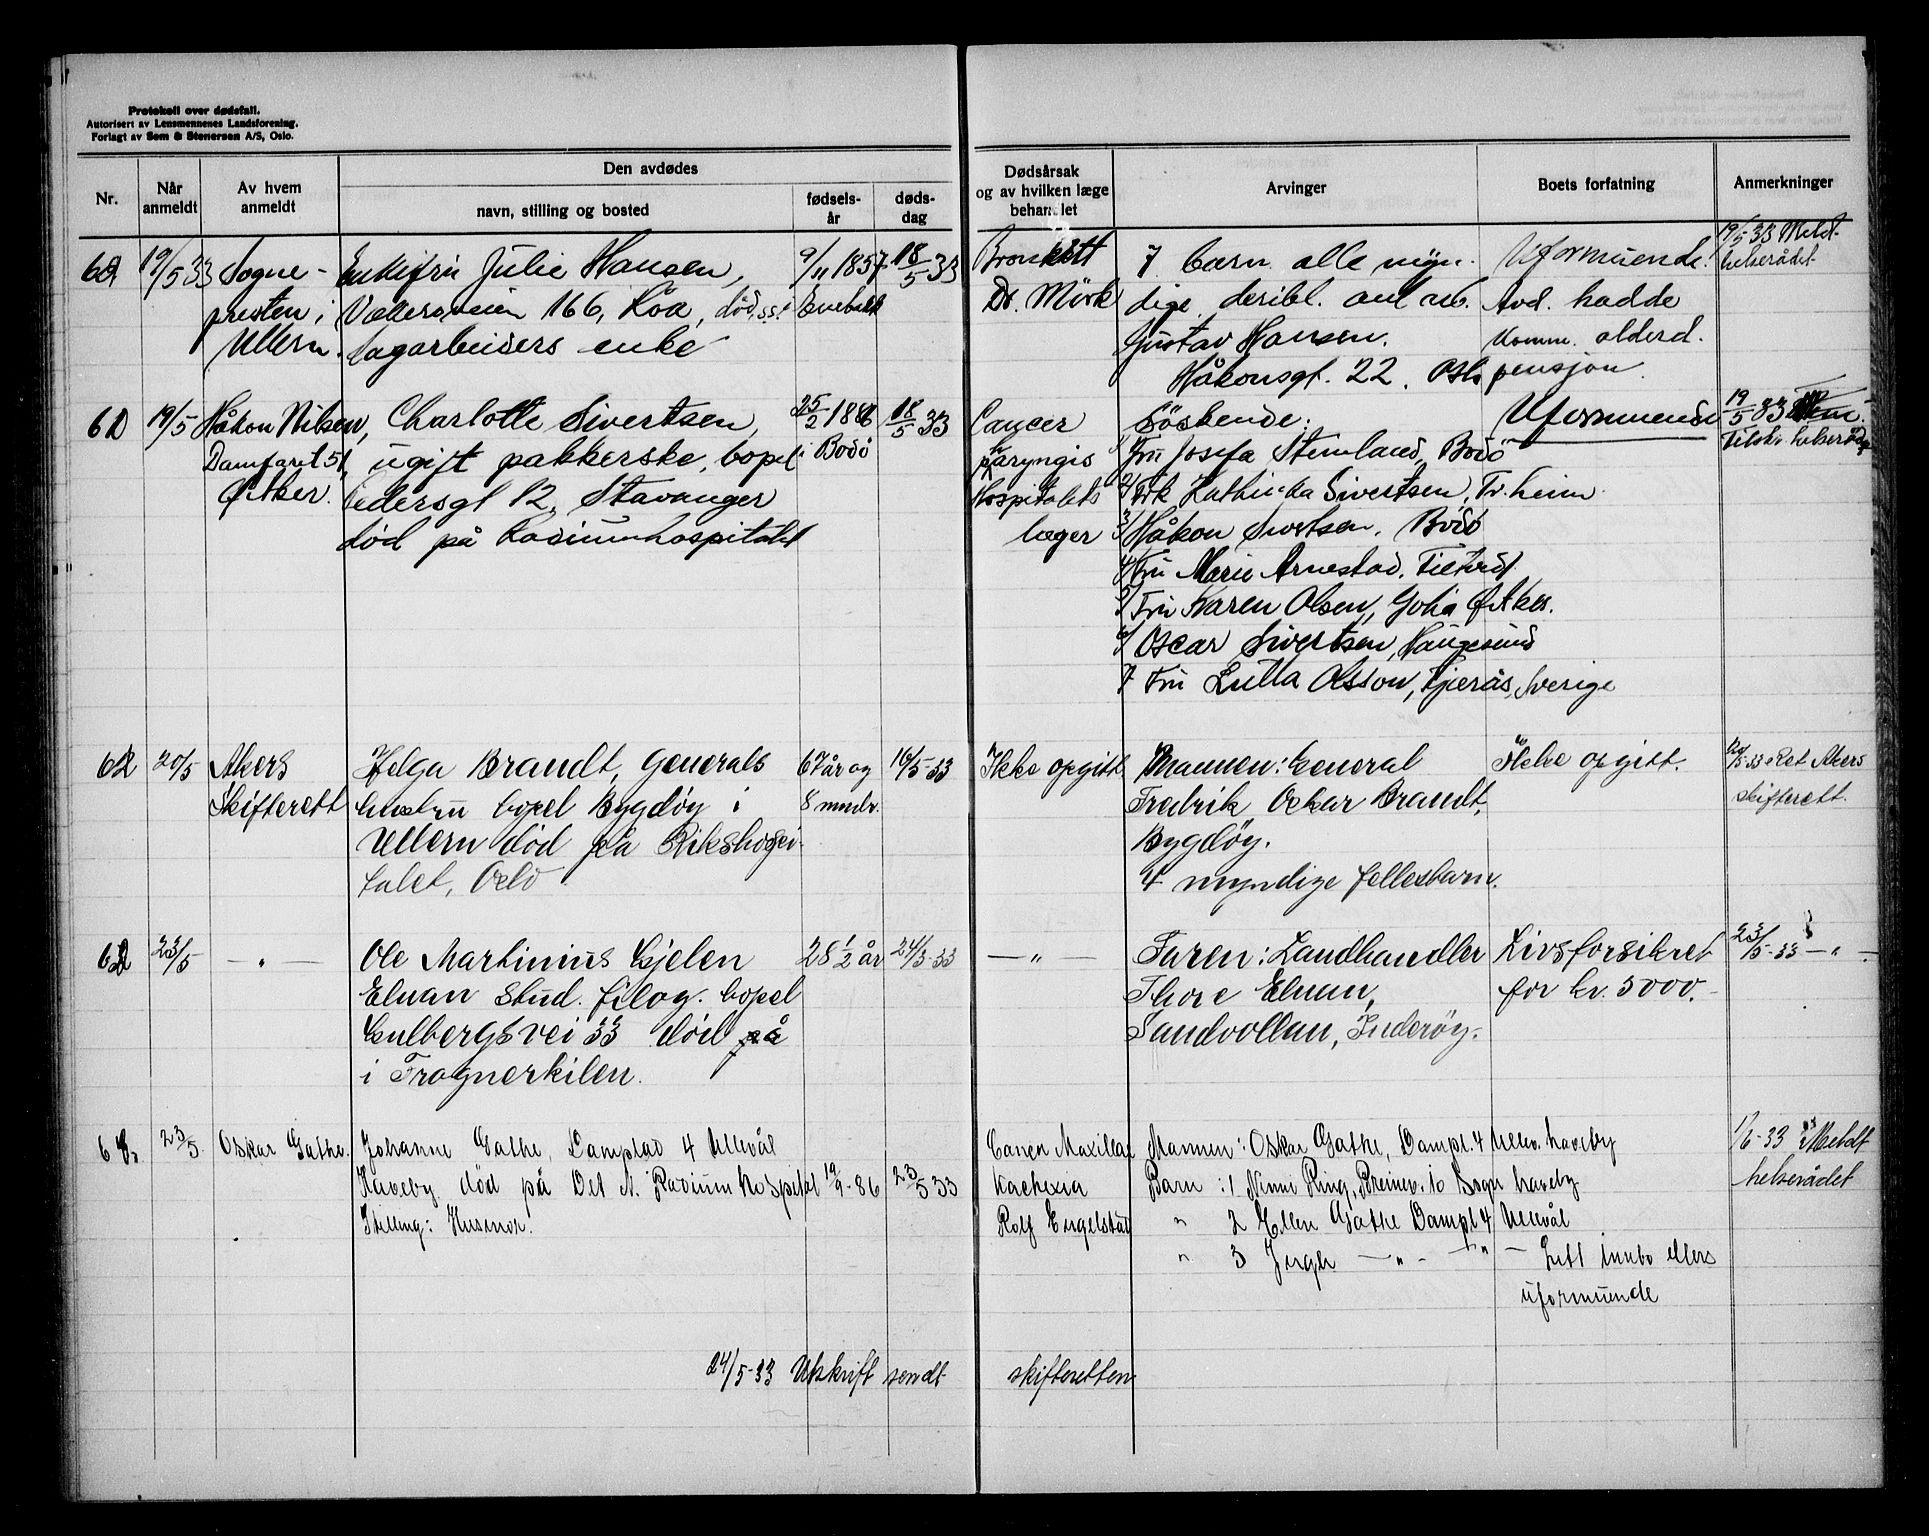 Protokoll over dødsfall.
Autorisert av Lensmennenes Landsforening.
Forlagt av Sem & Stenersen A/S, Oslo.
Nr.
Når anmeldt
Av hvem anmeldt
Den avdødes
navn, stilling og bosted
fødselsår
dødsdag
Dødsårsak
og av hvilken læge
behandlet
Arvinger
Boets forfatning
Anmerkninger
19/5 33 Sogne-
presten i
Ullern.
Enkefru Julie Hansen,
166, Röa, død sst.
enke
9/11 1857
18/5 33
Bronkitt
Dr. Mörk
7 barn alle myn-
dige, deribl. anl.
Gustav Hansen.
Håkonsgt. 22. Oslo
Uformuende.
Avd. hadde
komm. alderd.
pensjon.
19/5 33 Meldt
helserådet
19/5 Håkon Nilsen,
Damfaret 51
Ø. Aker.
Charlotte Sivertsen,
ugift pakkerske, bopel
Pedersgt 12, Stavanger
død på Radiumhospitalet
25/2
i Bodö
18/5 33
Cancer
Hospitalets
læger
Söskende:
1/ Fru Josefa Bodö
2/ Frk Sivertsen, Tr.heim.
3/ Håkon Sivertsen, Bodö
4/ Fru Marie Arnestad,
5/ Fru Karen Olsen, Ø. Aker.
6/ Oscar Sivertsen, Haugesund
7 Fru Lulla Olsson, Fjerås, Sverige
Uformuende
19/5 33
helseråd
62 20/5 Akers
Skifterett
Helga Brandt, Generals
hustru bopel Bygdøy i
Ullern død på Rikshospi-
talet, Oslo
67 år og
8 mndr.
16/5-33
Ikke opgitt
Mannen: General
Fredrik Oskar Brandt,
Bygdöy.
4 myndige fellesbarn.
Ikke opgitt.
20/5-33 Ret Akers
skifterett.
23/5 — " —
Ole Martinius Gjelen
Elnan stud. filog. bopel
Gulbergsvei 33 død på
i Frognerkilen.
28 1/2 år
24/3-33
— " —
Faren: Landhandler
Thore Elnan,
Sandvollan, Inderöy.
Livsforsikret
for kr. 5000.-
23/5-33 — " —
23/5. Oskar Gathe.
Johanne Gathe, Damplad 4 Ullevål
Haveby død på Det N. Radium hospital
Stilling: Husmor.
19/9-86
23/5 33
Cancer Maxillae
Kachexia
Rolf Engelstad
Mannen: Oskar Gathe, Dampl. 4 Ullev. haveby
Barn: 1 Ninni Ring, 10 Sogn haveby
" 2 Ellen Gathe Dampl 4 Ullevål
" 3 Inger — " — " —
Litt innbo ellers
uformuende
1/6-33 Meldt
helserådet
24/5-33 Utskrift sendt skifteretten